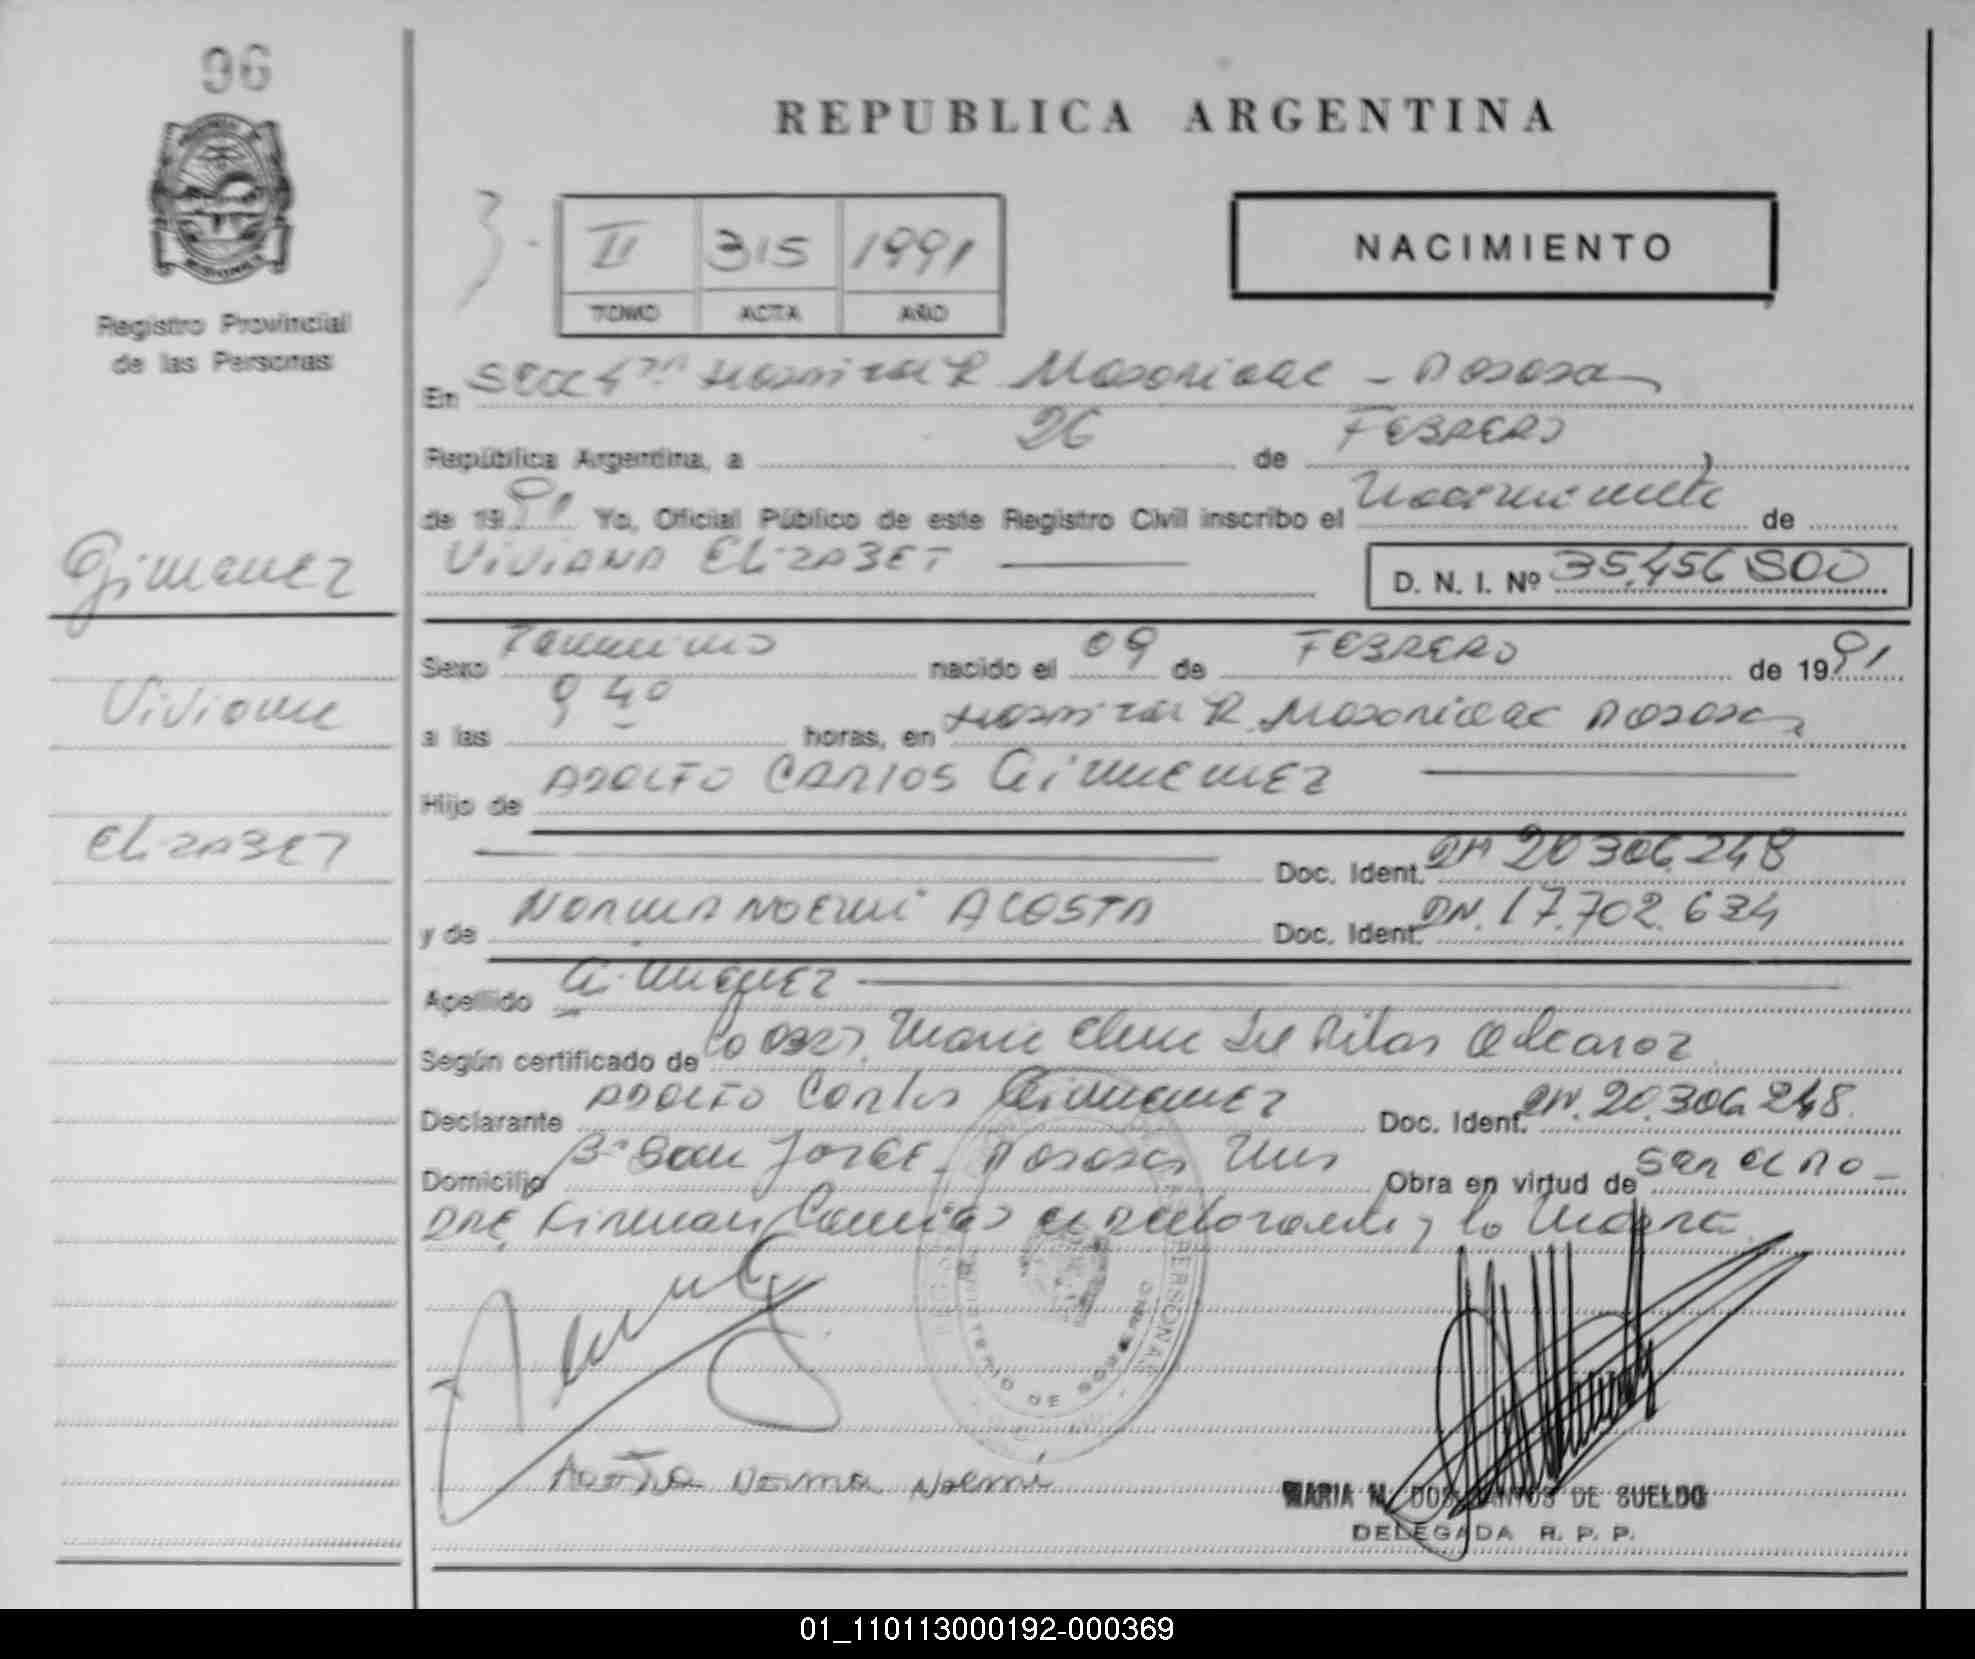 96
REPUBLICA ARGENTINA
NACIMIENTO
II 315 1991
TOMO ACTA AÑO
Registro Provincial
de las Personas
En Secc 4ta Hospital R. Madariaga - Posadas
República Argentina, a 26 de FEBRERO
de 1991 Yo, Oficial Público de este Registro Civil inscribo el Nacimiento de
VIVIANA ELIZABET
D. N. I. Nº 35.456.800
Gimenez
Viviana
ELIZABET
Sexo Femenino nacido el 09 de FEBRERO de 1991
a las 9 40 horas, en Hospital R. Madariaga Posadas
Hijo de ADOLFO CARLOS GiMENEZ
Doc. Ident. DNI 20.306.248
y de NORMA NOEMI ACOSTA Doc. Ident. DNI. 17.702.634
Apellido GiMENEZ
Según certificado de la Obst. Maria Elena Del Pilar Alcaraz
Declarante ADOLFO Carlos Gimenez Doc. Ident. DNI. 20.306.248
Domicilio Bº San JORGE - Posadas Mnes Obra en virtud de Ser el PA-
DRE, Firman el declarante y la Madre.
MINISTERIO DE GOBIERNO
Acosta Norma Noemi
MARIA M. DOS SANTOS DE SUELDO
DELEGADA R. P. P.
01_110113000192-000369